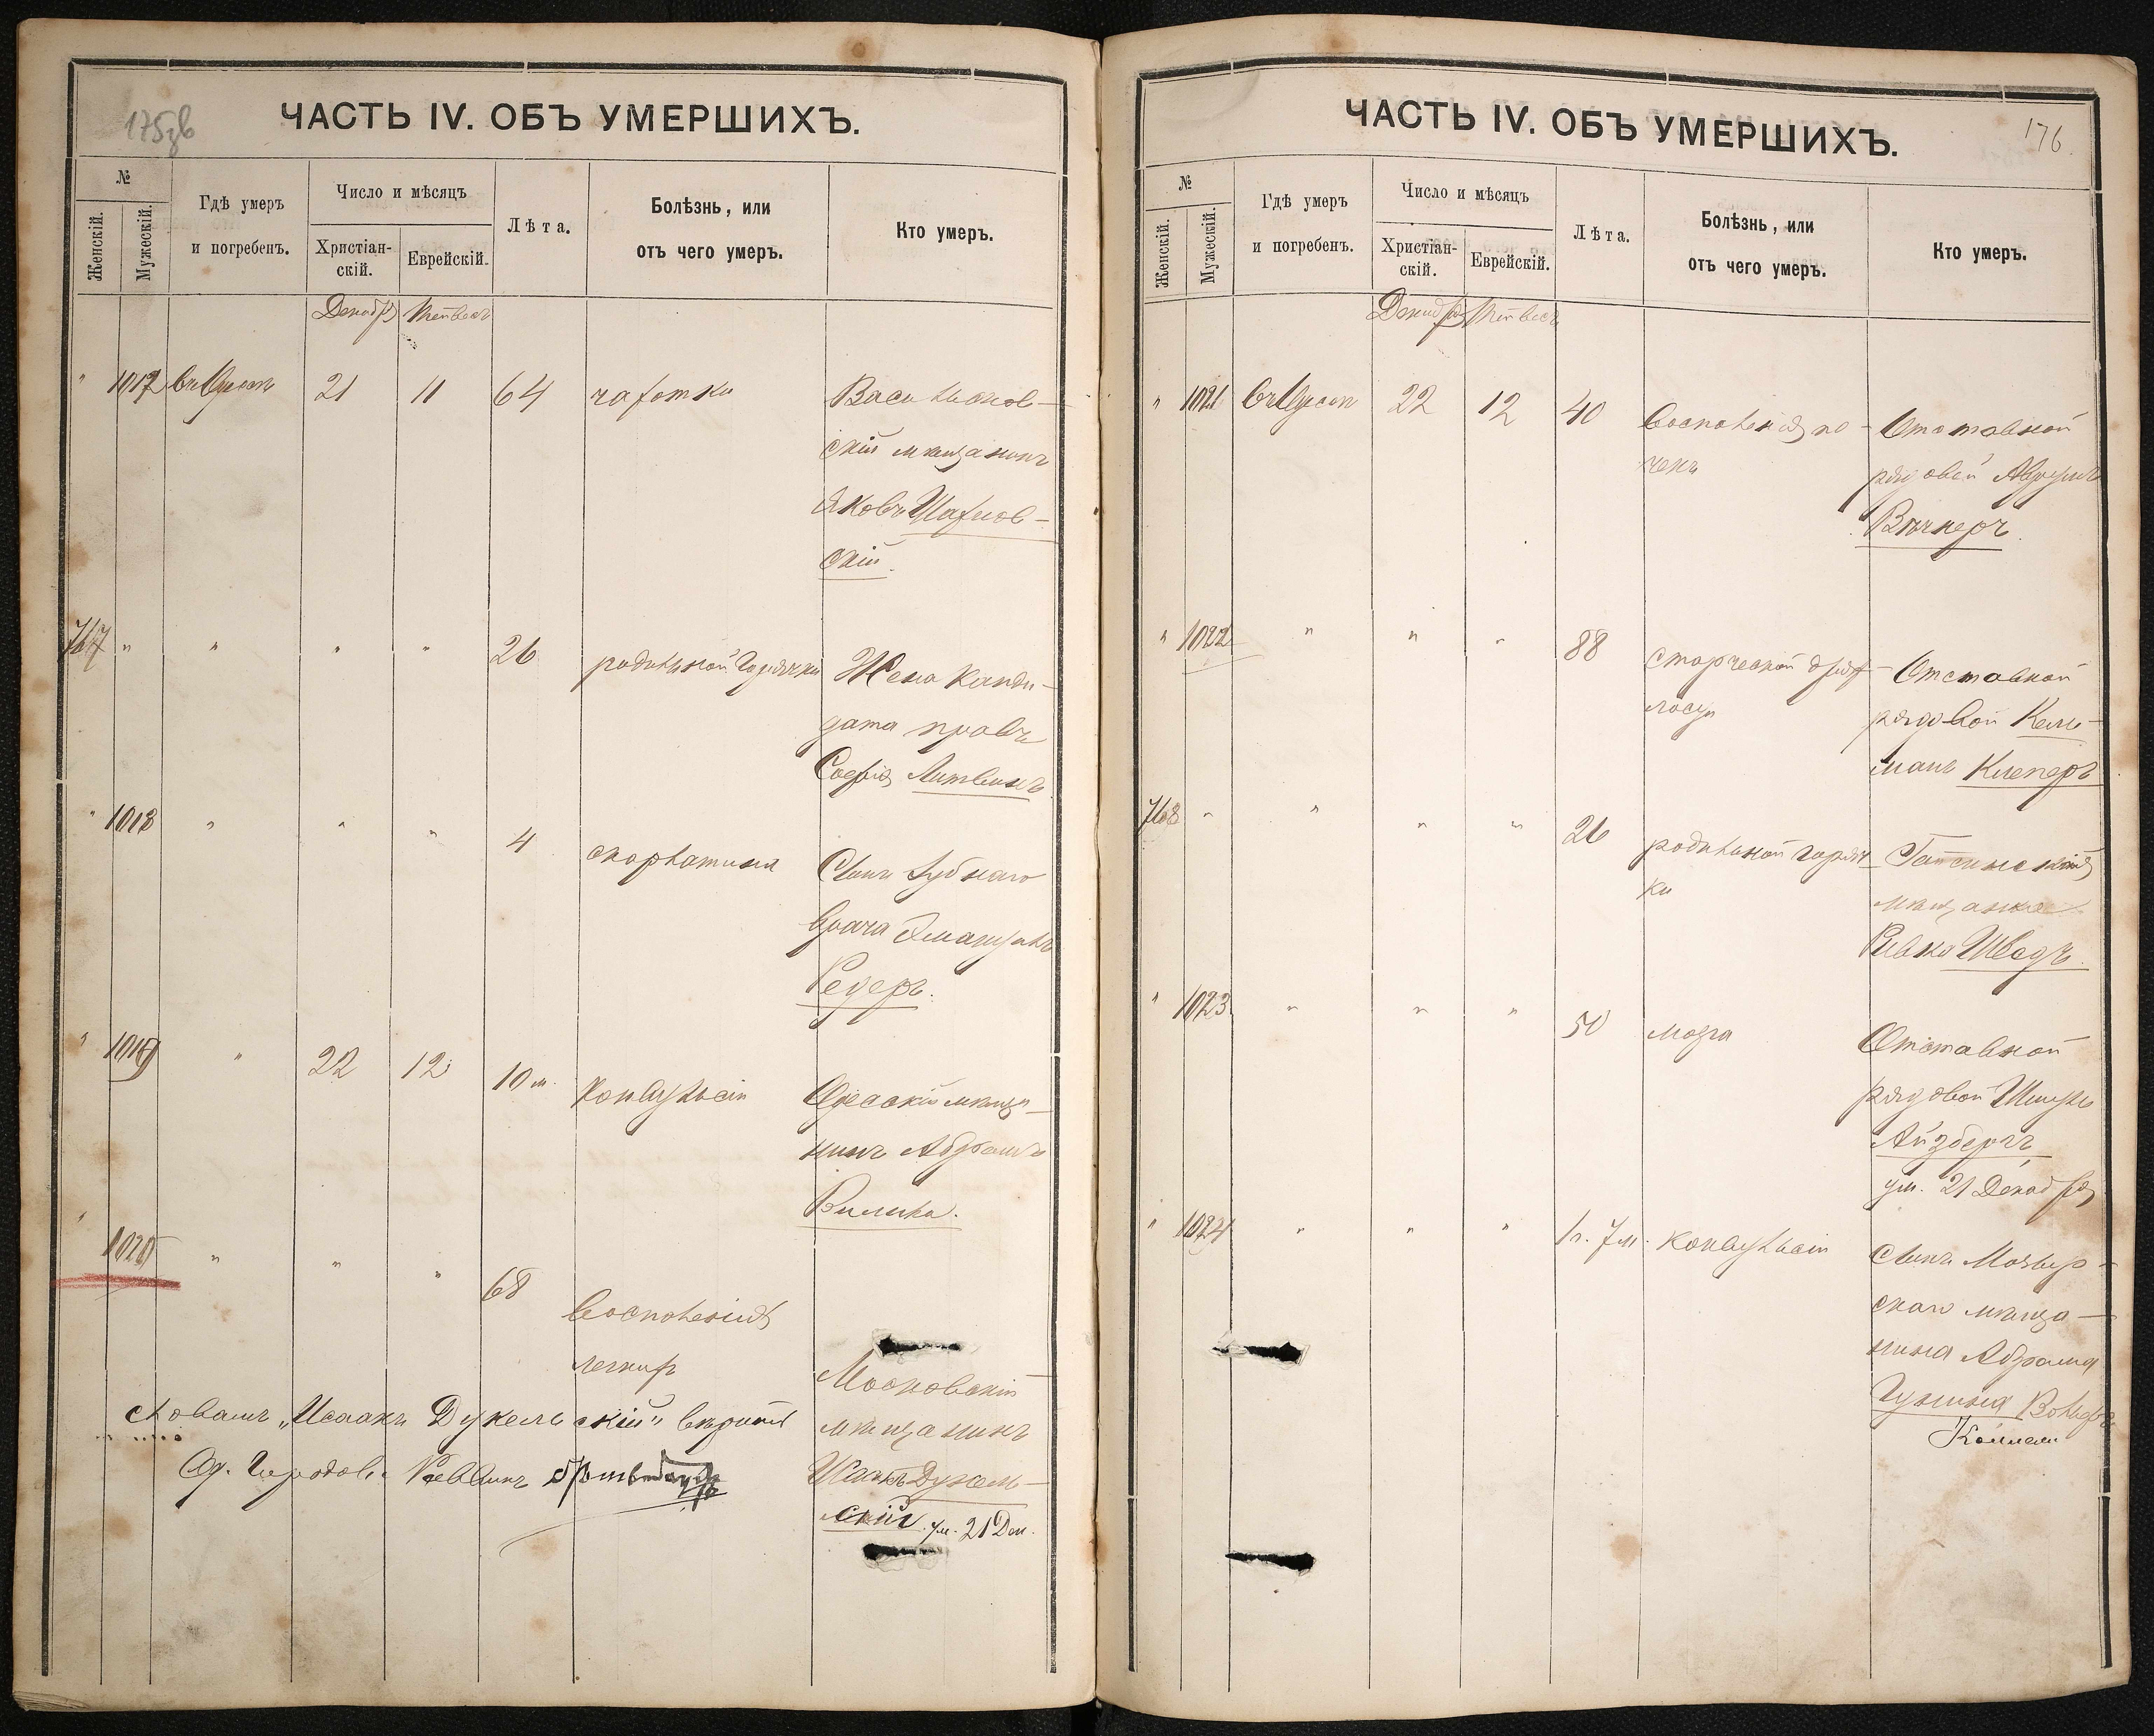 175зв
ЧАСТЬ IV. ОБЪ УМЕРШИХЪ.
№
Женскій.
Мужескій.
Гдѣ умеръ
и погребенъ.
Число и мѣсяцъ
Христіан-
скій.
Еврейскій.
Лѣта.
Болѣзнь, или
отъ чего умеръ.
Кто умеръ.
Декабря Тейвесъ
" 1017 въ Одессѣ 21 11 64 чахотки Васильков-
скій мѣщанинъ
Яковъ
скій.
767 " " " " 26 родильной горячки Жена Канди-
дата правъ
Софія Литвинъ
" 1018 " " " 4 скарлатина Сынъ зубнаго
врача Эмануилъ
Редеръ.
" 1019 " 22 12 10 м. Конвульсіи Одесскій мѣща-
нинъ Абрамъ
" 1020 " " " 68 Воспаленія
легкихъ
Московскій
мѣщанинъ
Исаакъ Дукель-
скій ум. 21 Дек.
Словамъ „Исаакъ Дукельскій" вѣрить
Од. Городов. Раввинъ
176
ЧАСТЬ IV. ОБЪ УМЕРШИХЪ.
№
Женскій.
Мужескій.
Гдѣ умеръ
и погребенъ.
Число и мѣсяцъ
Христіан-
скій.
Еврейскій.
Лѣта.
Болѣзнь, или
отъ чего умеръ.
Кто умеръ.
Декабря Тейвесъ
" 1021 въ Одессѣ 22 12 40 Воспаленія по-
чекъ
Отставной
рядовой
" 1022 " " " 88 Старческой дрях-
лости
Отставной
рядовой Кель-
манъ Клеперъ
768 " " " " 26 родильной горяч-
ки
мѣщанка
Ривка Шведъ.
" 1023 " " " 50 мозга Отставной
рядовой Шмуль
Айзбергъ
ум. 21 Декабря
" 1024 " " " 1 г. 7 м. Конвульсіи Сынъ Мозыр-
скаго мѣща-
нина Абрама
Вольфъ